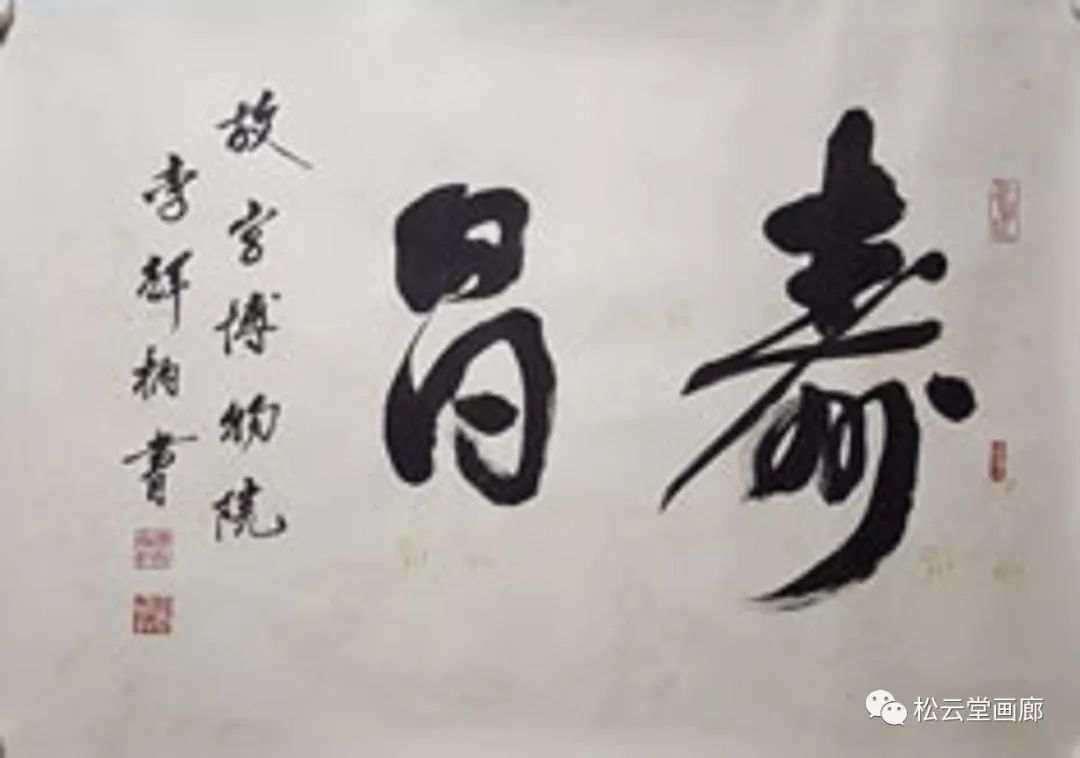 寿昌
故宫博物院
李辉柄書
松云堂画廊